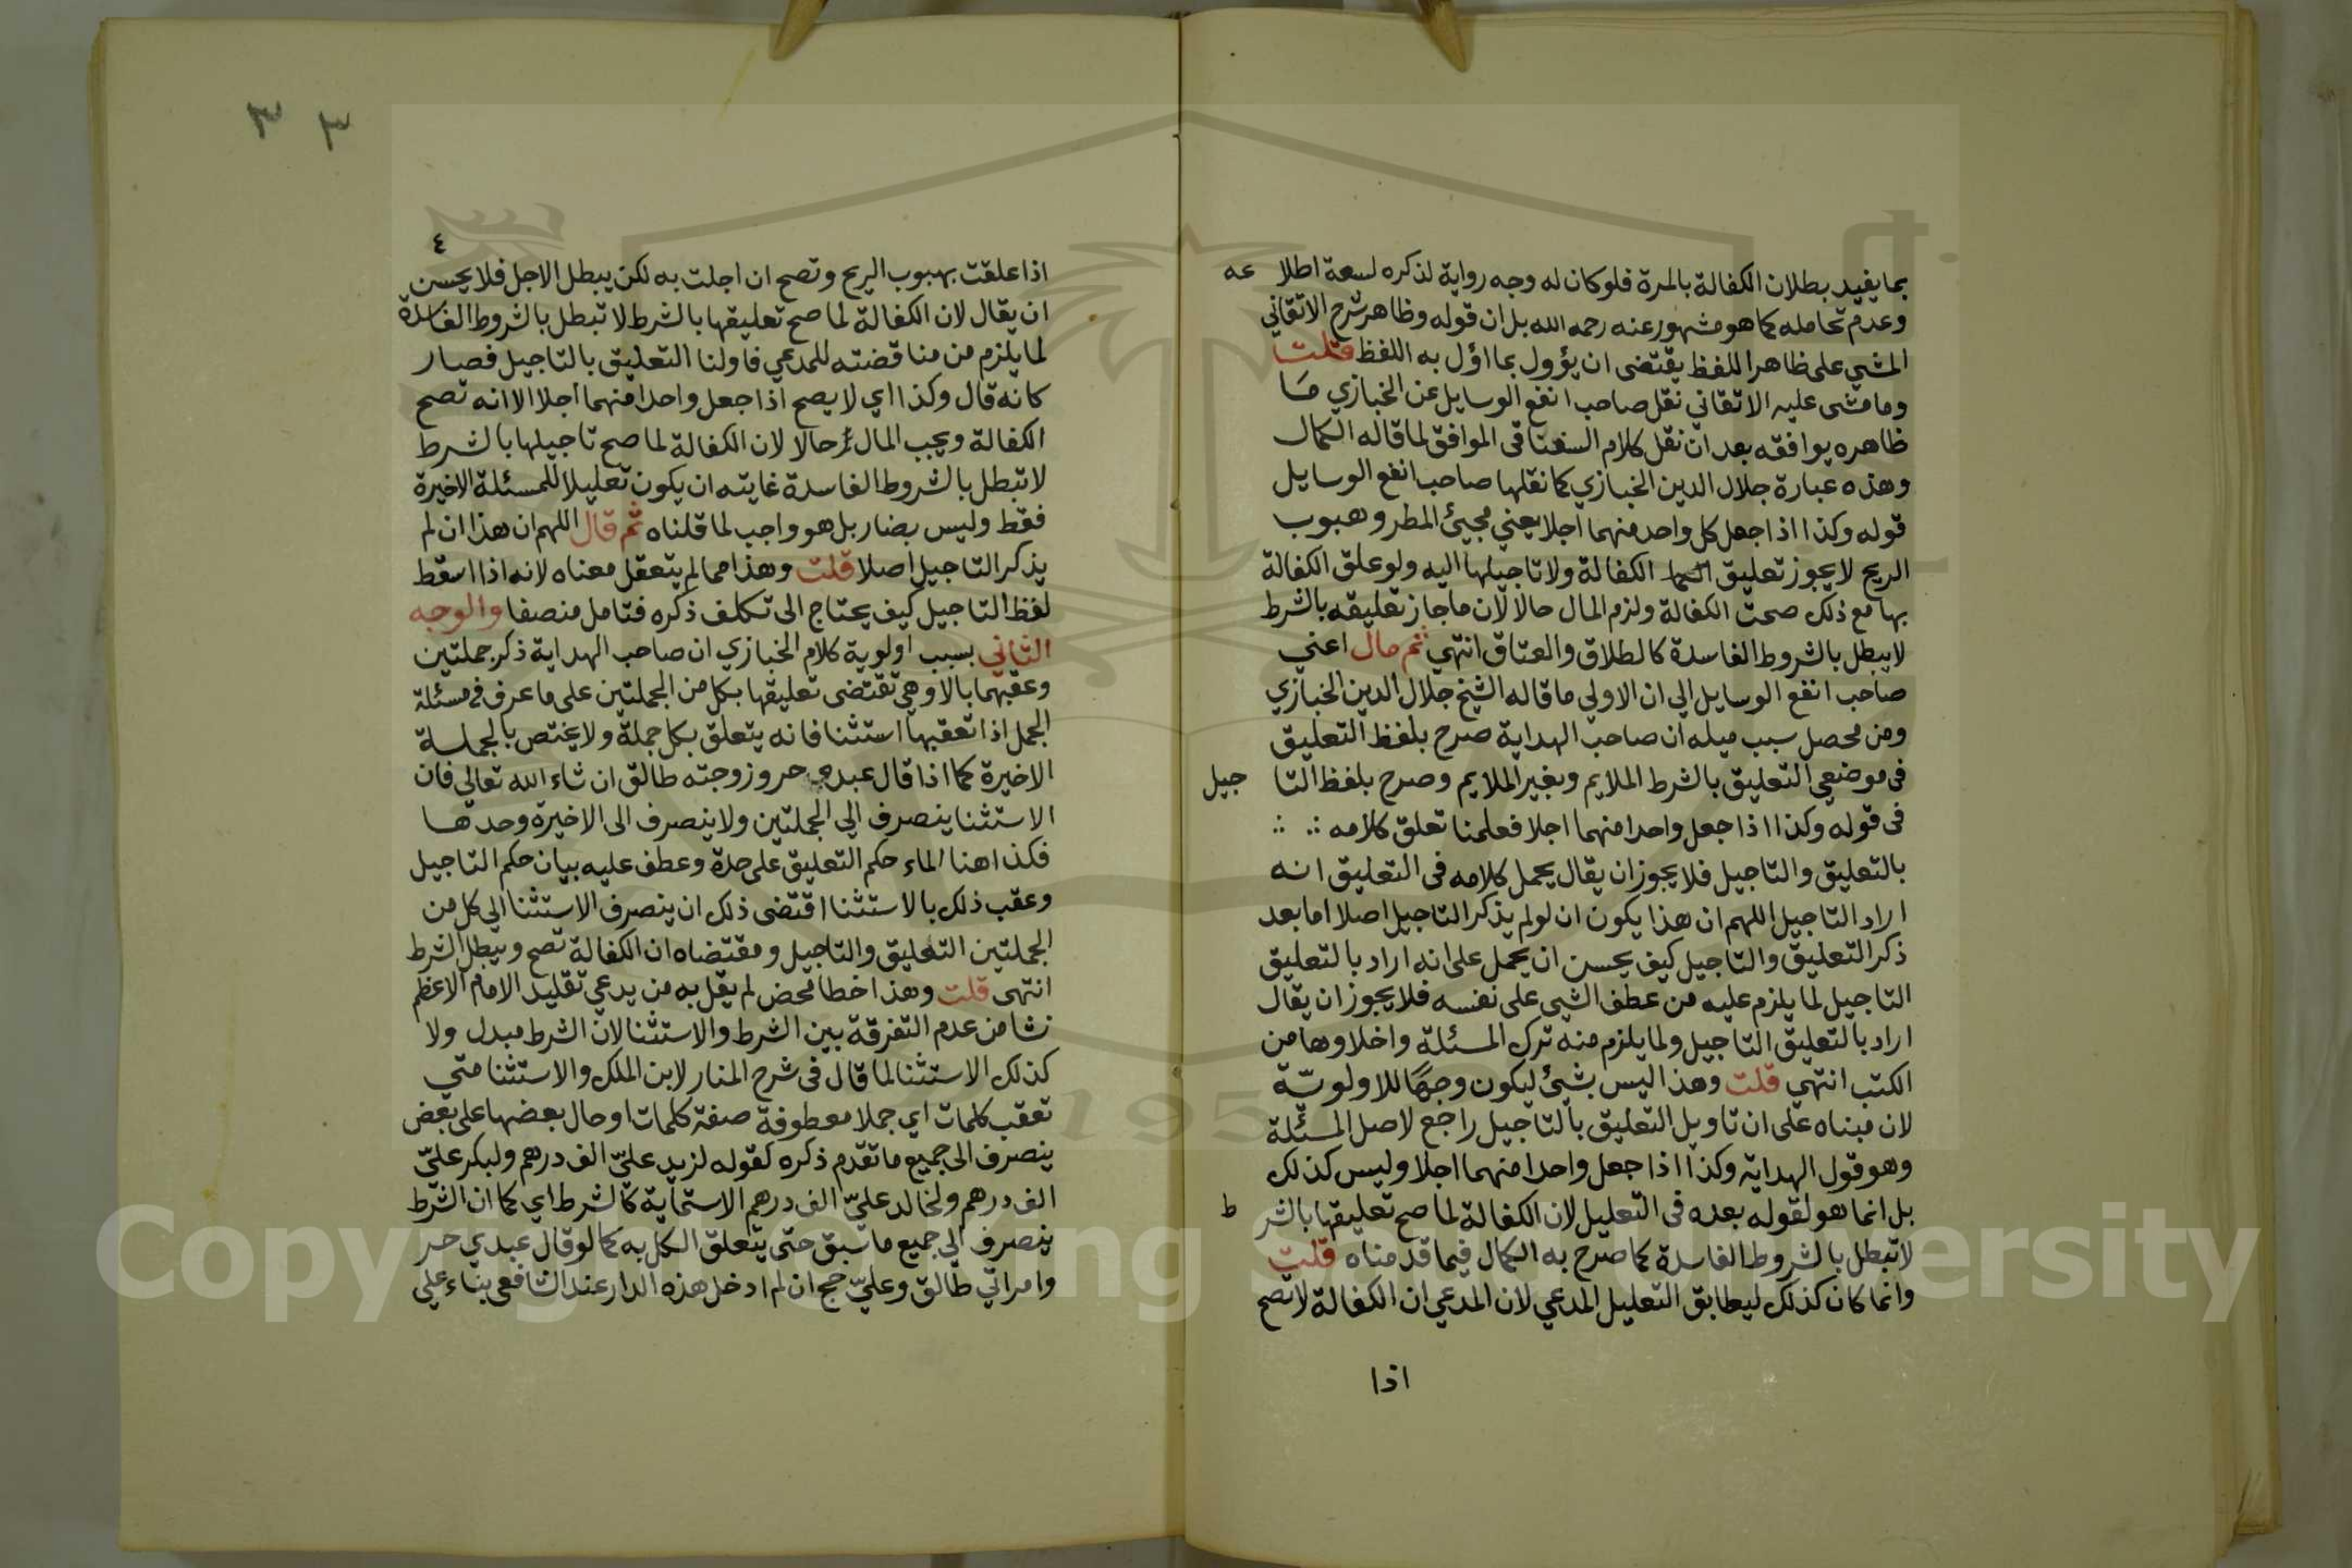 بما يفيد بطلان الكفالة بالمرة فلو كان له وجه رواية لذكره لسعة اطلا عه
وعدم تحامله كما هو مشهور عنه رحمه الله بل ان قوله وظاهر شرح الاتقاني
المشي على ظاهر اللفظ يقتضى ان يؤول بما اؤل به اللفظ قلت
وما مشى عليه الاتقاني نقل صاحب انفع الوسايل عن الخبازي مَا
ظاهره يوافقه بعد ان نقل كلام السغناقى الموافق لما قاله الكمال
وهذه عبارة جلال الدين الخبازي كما نقلها صاحب انفع الوسايل
قوله وكذا اذا جعل كل واحد منهما اجلا يعني مجيئ المطر وهبوب
الريح لا يجوز تعليق الكفالة ولا تاجيلها اليه ولو علق الكفالة
بها مع ذلك صحت الكفالة ولزم المال حالا لان ما جاز تعليقه بالشرط
لا يبطل بالشروط الفاسدة كالطلاق والعتاق انتهي ثم مال اعني
صاحب انفع الوسايل الي ان الاولي ما قاله الشيخ جلال الدين الخبازي
ومن محصل سبب ميله ان صاحب الهداية صرح بلفظ التعليق
فى موضعي التعليق بالشرط الملايم وبغير الملايم وصرح بلفظ التا جيل
فى قوله وكذا اذا جعل واحدا منهما اجلا فعلمنا تعلق كلامه
بالتعليق والتاجيل فلا يجوز ان يقال يحمل كلامه فى التعليق انه
اراد التاجيل اللهم ان هذا يكون ان لو لم يذكر التاجيل اصلا اما بعد
ذكر التعليق والتاجيل كيف يحسن ان يحمل على انه اراد بالتعليق
التاجيل لما يلزم عليه من عطف الشي على نفسه فلا يجوز ان يقال
اراد بالتعليق التاجيل ولما يلزم منه ترك المسئلة واخلاوها من
الكتب انتهي قلت وهذا ليس بشيئ ليكون وجهًا للاولويّة
لان مبناه على ان تاويل التعليق بالتاجيل راجع لاصل المسئلة
وهو قول الهداية وكذا اذا جعل واحدا منهما اجلا وليس كذلك
بل انما هو لقوله بعده فى التعليل لان الكفالة لما صح تعليقها بالشر ط
لا تبطل بالشروط الفاسدة كما صرح به الكمال فيما قدمناه قلت
وانما كان كذلك ليطابق التعليل المدعي لان المدعي ان الكفالة لا تصح
اذا
٣ ٣
٤
اذا علقت بهبوب الريح وتصح ان اجلت به لكن يبطل الاجل فلا يحسن
ان يقال لان الكفالة لما صح تعليقها بالشرط لا تبطل بالشروط الفاسدة
لما يلزم من مناقضته للمدعي فاولنا التعليق بالتاجيل فصار
كانه قال وكذا اي لا يصح اذا جعل واحدا منهما اجلا الا انه تصح
الكفالة ويجب المال حالا لان الكفالة لما صح تاجيلها بالشرط
لا تبطل بالشروط الفاسدة غايته ان يكون تعليلا للمسئلة الاخيرة
فقط وليس بضار بل هو واجب لما قلناه ثم قال اللهم ان هذا ان لم
يذكر التاجيل اصلا قلت وهذا مما لم يتعقل معناه لانه اذا اسقط
لفظ التاجيل كيف يحتاج الى تكلف ذكره فتامل منصفا والوجه
الثاني بسبب اولوية كلام الخبازي ان صاحب الهداية ذكر جملتين
وعقبهما بالا وهي تقتضى تعليقها بكل من الجملتين على ما عرف فى مسئلة
الجمل اذا تعقبها استثنا فانه يتعلق بكل جملة ولا يختص بالجملة
الاخيرة كما اذا قال عبدي حر وزوجته طالق ان شاء الله تعالي فان
الاستثنا ينصرف الي الجملتين ولا ينصرف الى الاخيرة وحدها
فكذا هنا لماء حكم التعليق على حدة وعطف عليه بيان حكم التاجيل
وعقب ذلك بالاستثنا اقتضى ذلك ان ينصرف الاستثنا الي كل من
الجملتين التعليق والتاجيل ومقتضاه ان الكفالة تصح ويبطل الشرط
انتهى قلت وهذا خطا محض لم يقل به من يدعي تقليد الامام الاعظم
نشا من عدم التفرقة بين الشرط والاستثنا لان الشرط مبدل ولا
كذلك الاستثنا لما قال فى شرح المنار لابن الملك والاستثنا متي
تعقب كلمات اي جملا معطوفة صفة كلمات او حال بعضها على بعض
ينصرف الى جميع ما تقدم ذكره كقوله لزيد عليّ الف درهم ولبكر عليّ
الف درهم ولخالد عليّ الف درهم الا ستماية كالشرط اي كما ان الشرط
ينصرف الي جميع ما سبق حتى يتعلق الكل به كما لو قال عبدي حر
وامراتي طالق وعليّ حج ان لم ادخل هذه الدار عند الشافعى بناء علي
Copyright © King Saud University
195